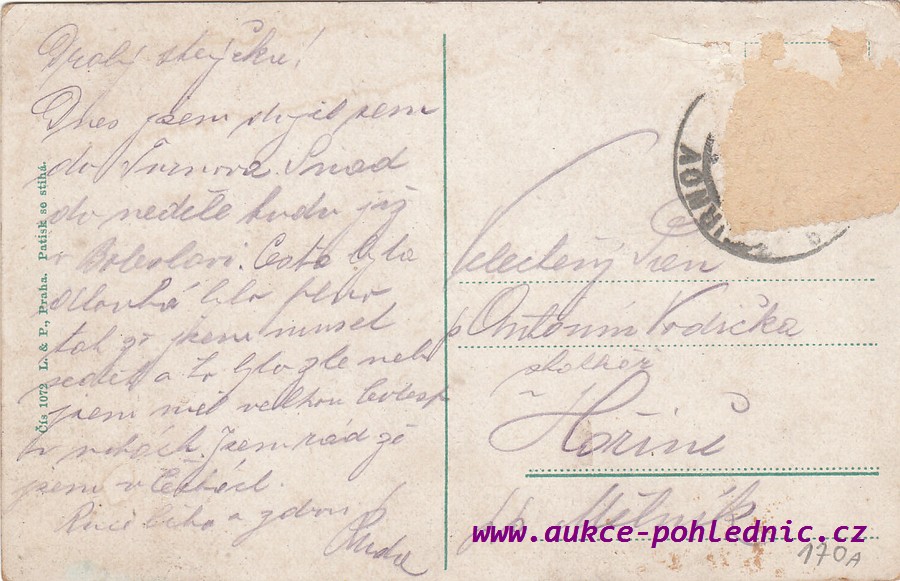 Drahý strýčku!
Dnes jsem přijel sem
do Turnova. Snad
do neděle budu již
v Boleslavi. Cesta byla
dlouhá bylo plno
tak že jsem musel
sedět a to bylo zle neb
jsem měl velkou bolest
v nohách. Jsem rád že
jsem v Čechách.
Ruce líbá a zdraví
Čís 1072 L. & P., Praha. Patisk se stíhá.
TURNOV
Velectěný Pan
p. Antonín Vodička
Hoříně
Mělník
www.aukce-pohlednic.cz
170A